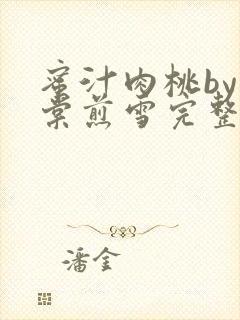 蜜汁肉桃by
棠煎雪完整
潘金